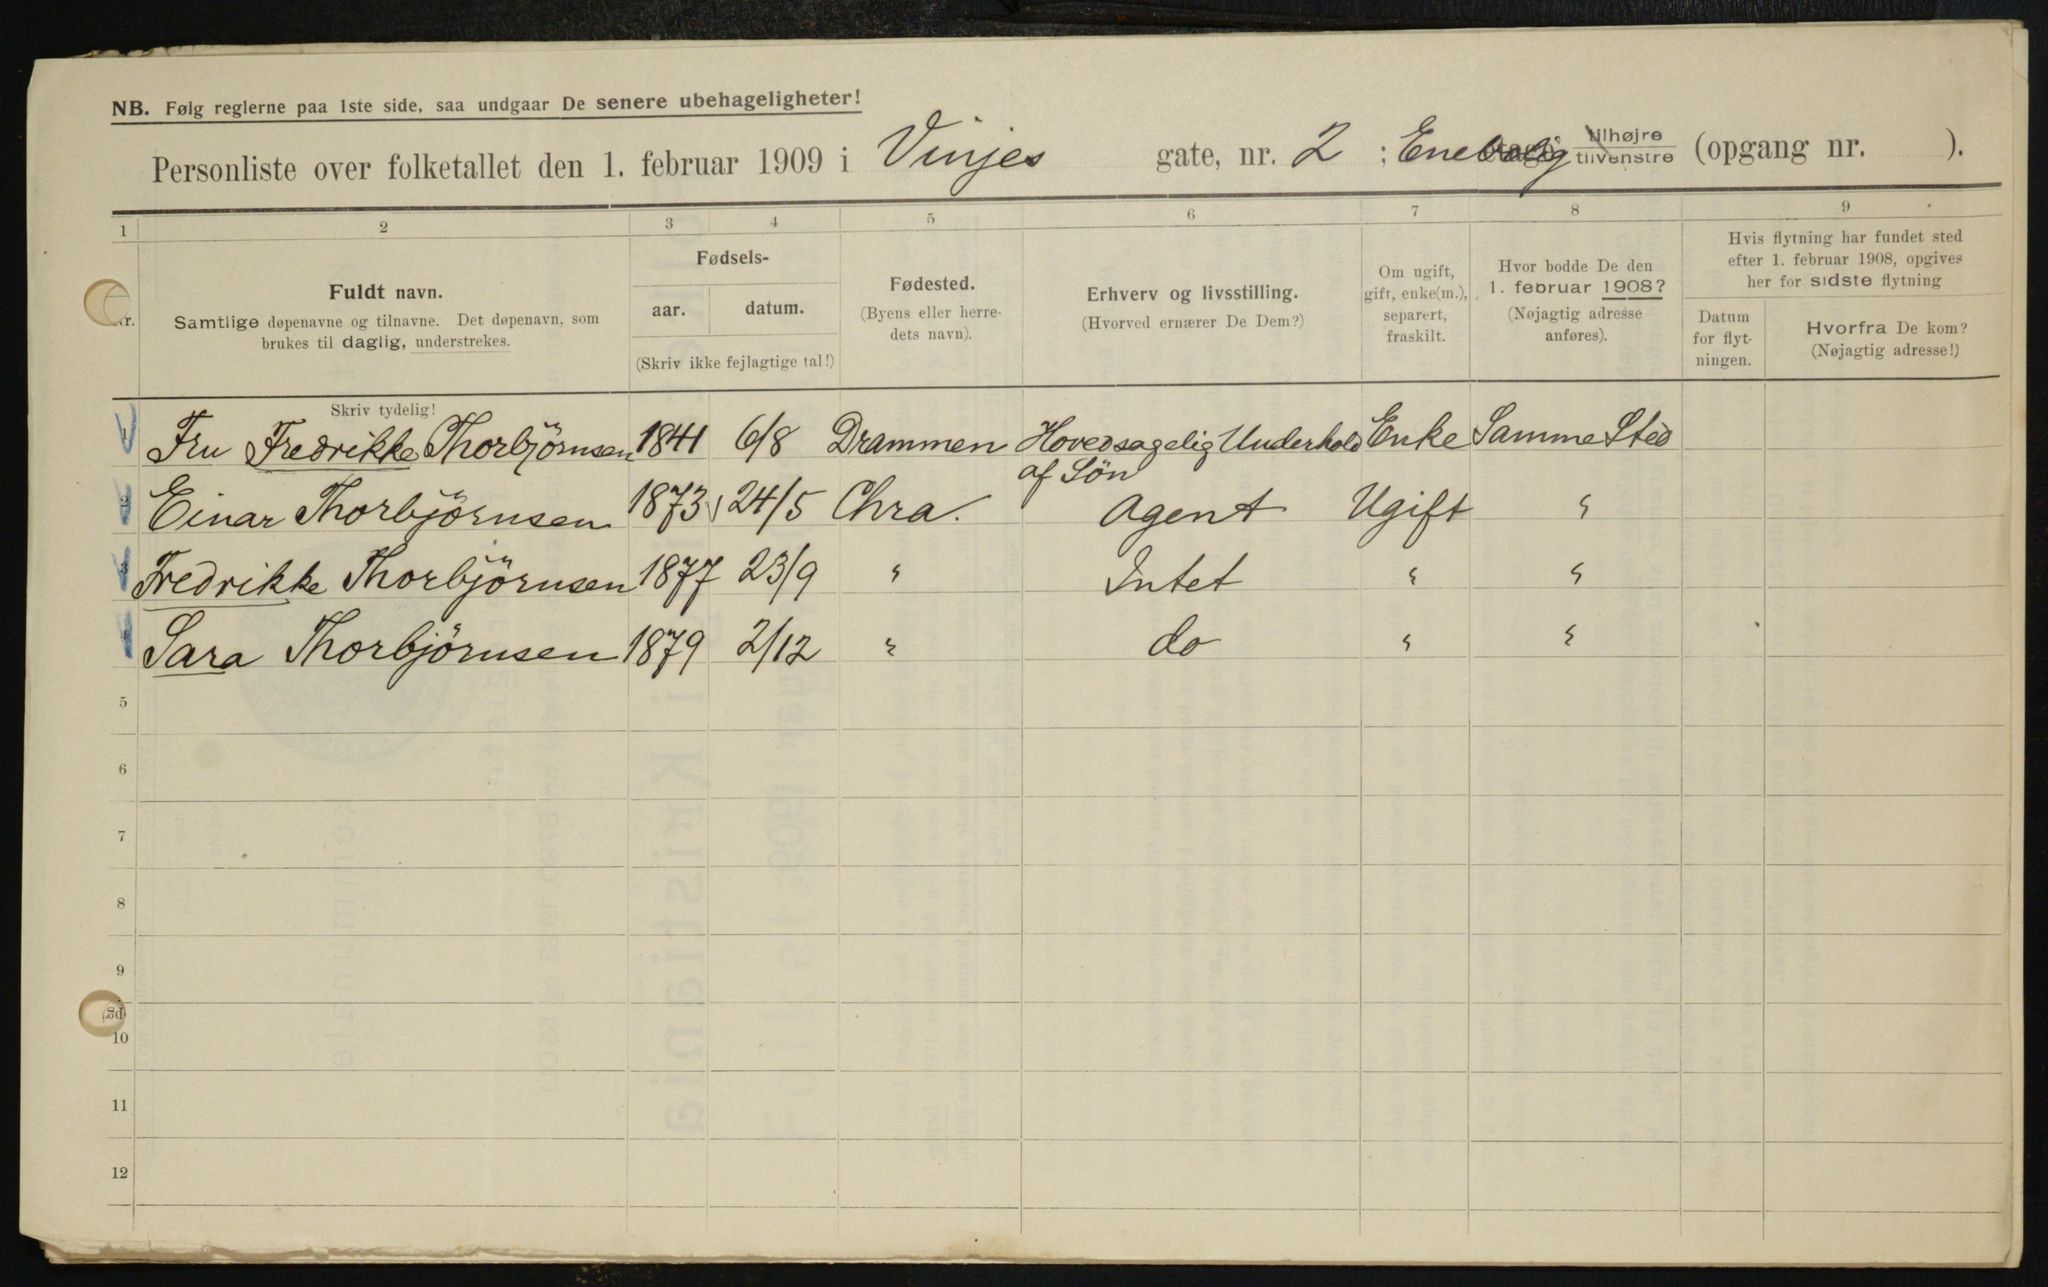 NB. Følg reglerne paa 1ste side, saa undgaar De senere ubehageligheter!
Personliste over folketallet den 1. februar 1909 i Vinjes gate, nr. 2 ; Enebolig etage tilhøjre tilvenstre (opgang nr. ).
1 2 3 4 5 6 7 8 9
Nr.
Fuldt navn.
Samtlige døpenavne og tilnavne. Det døpenavn, som
brukes til daglig, understrekes.
Fødsels-
aar. datum.
(Skriv ikke fejlagtige tal!)
Fødested.
(Byens eller herre-
dets navn).
Erhverv og livsstilling.
(Hvorved ernærer De Dem?)
Om ugift,
gift, enke(m.),
separert,
fraskilt.
Hvor bodde De den
1. februar 1908?
(Nøjagtig adresse
anføres).
Hvis flytning har fundet sted
efter 1. februar 1908, opgives
her for sidste flytning
Datum
for flyt-
ningen.
Hvorfra De kom?
(Nøjagtig adresse!)
Skriv tydelig!
1 Fru Fredrikke Thorbjörnsen 1841 6/8 Drammen Hovedsagelig Underhold Enke Samme Sted
af Sön
2 Einar Thorbjörnsen 1873 24/5 Chra. Agent Ugift "
3 Fredrikke Thorbjörnsen 1877 23/9 " Intet " "
4 Sara Thorbjörnsen 1879 2/12 " do " "
5
6
7
8
9
10
11
12